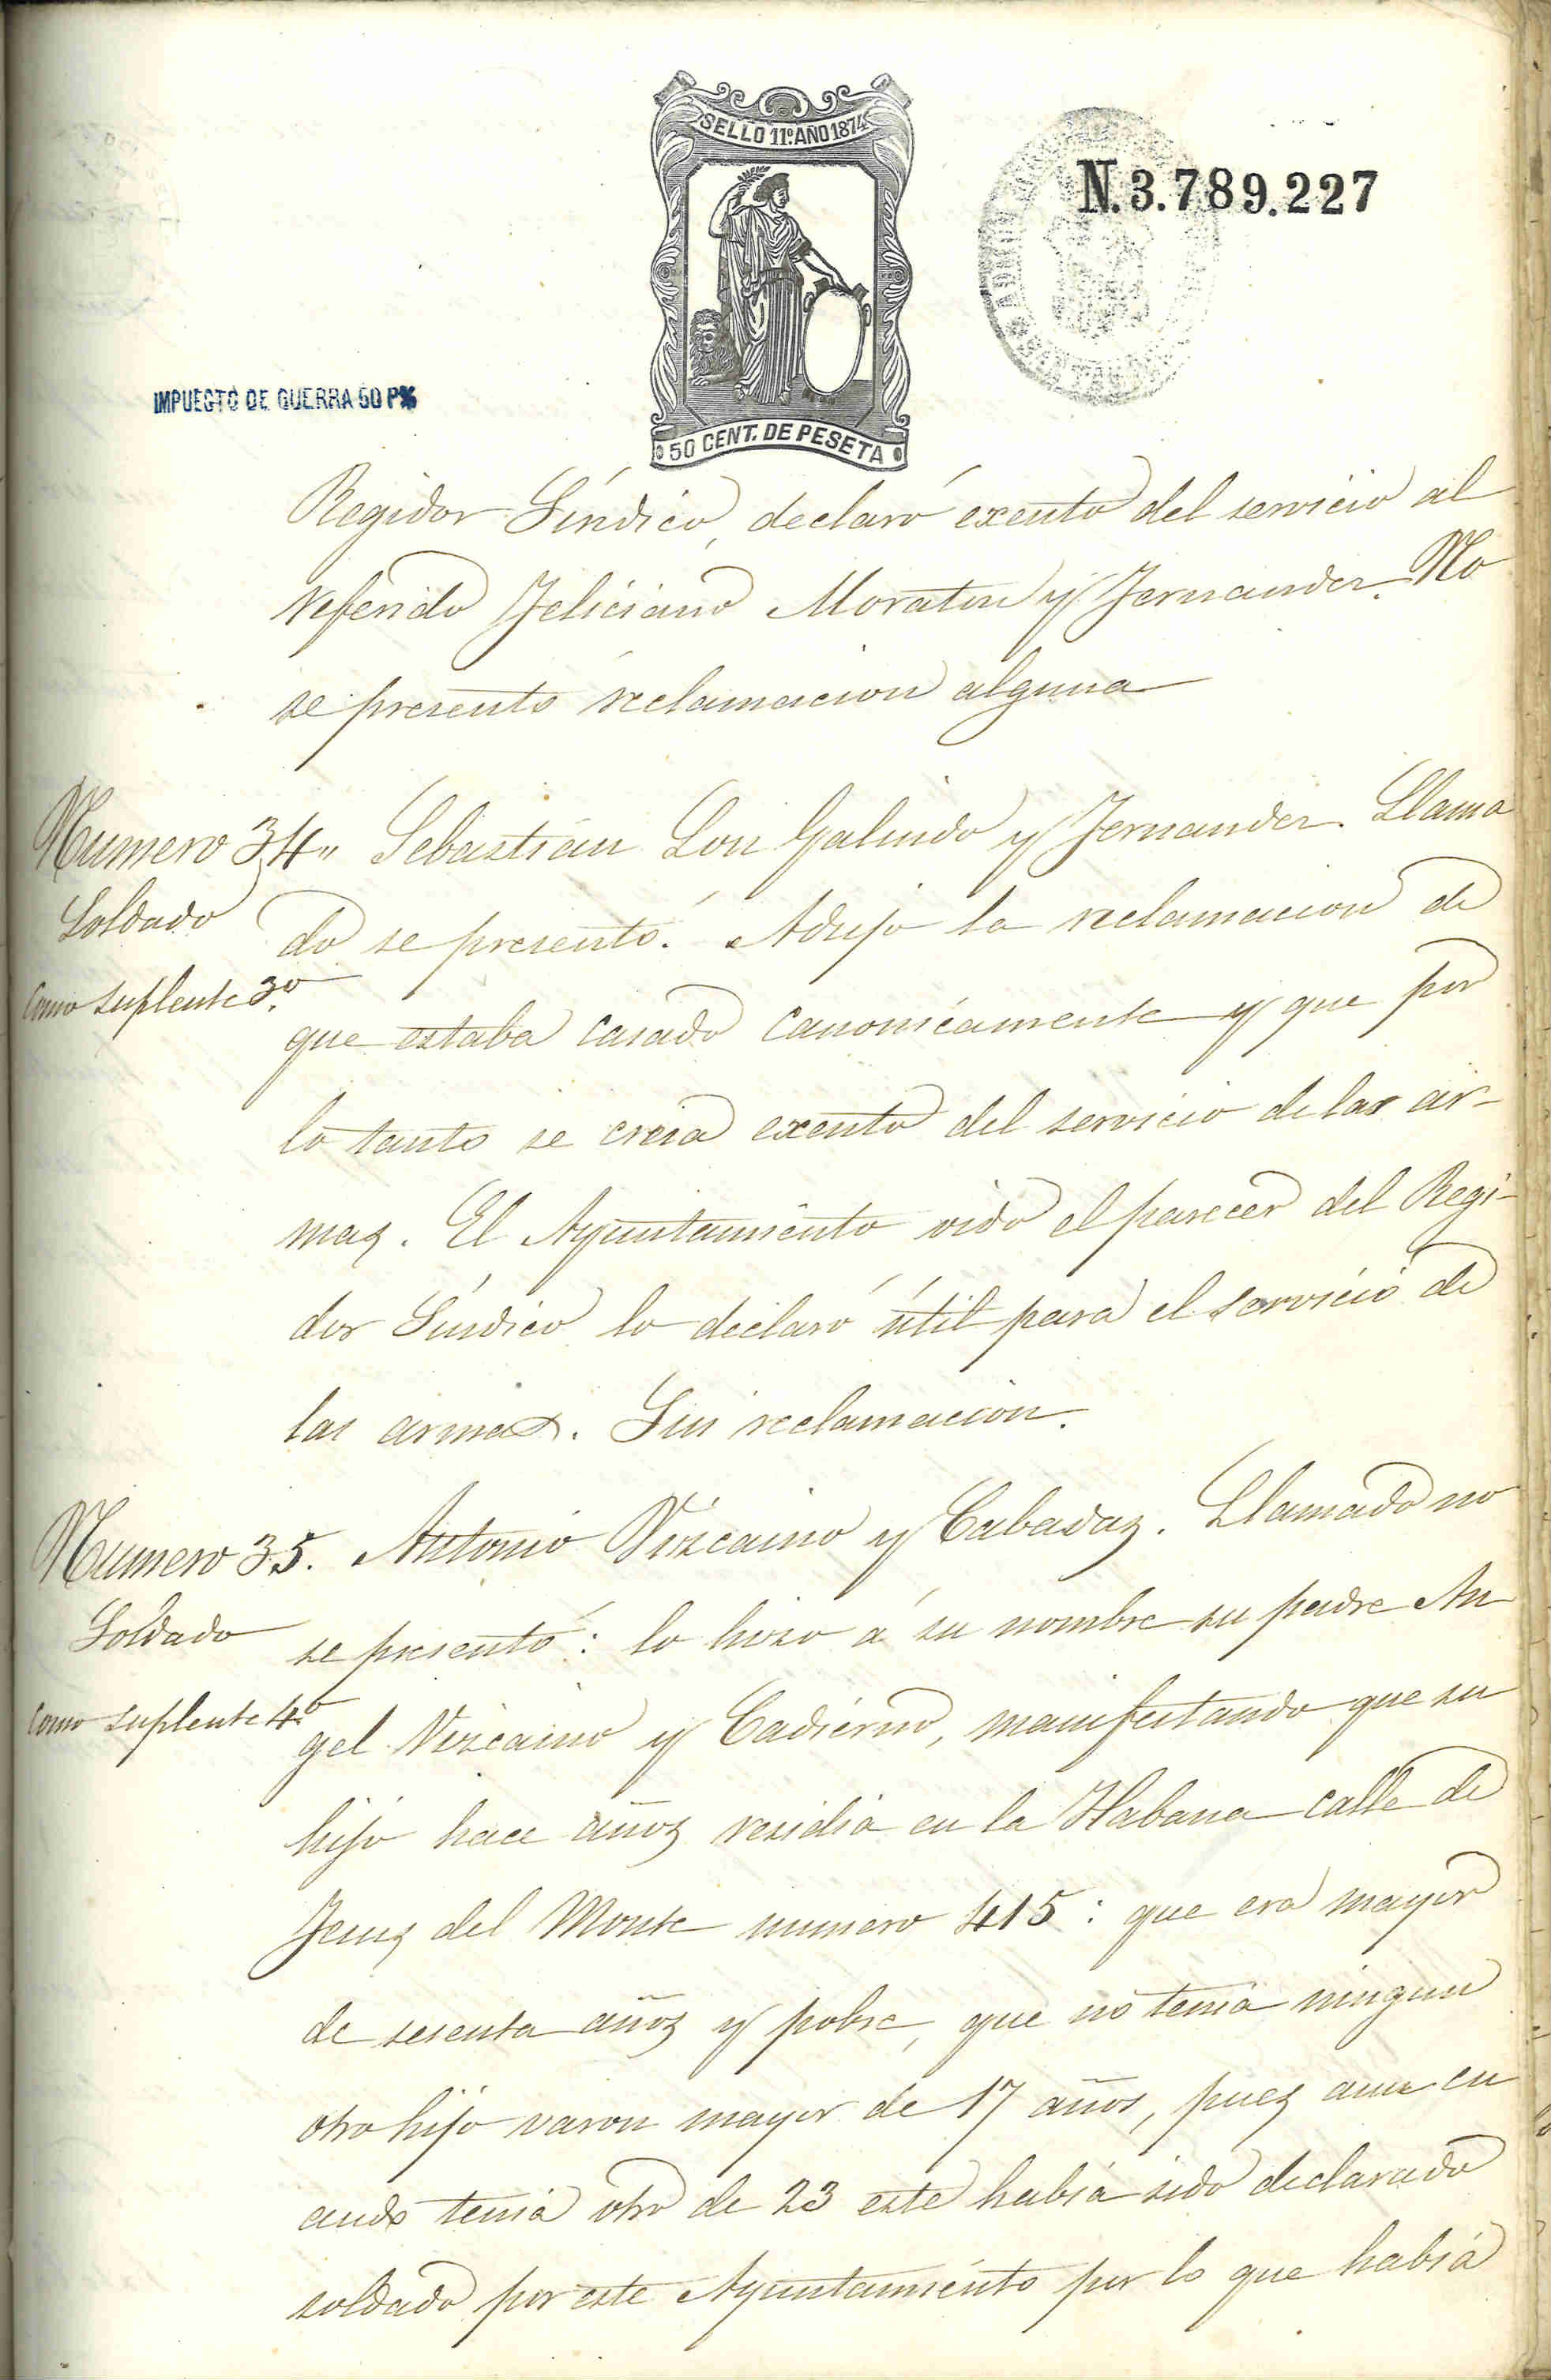 SELLO 11º AÑO 1874
N.3.789.227
IMPUESTO DE GUERRA 50 P%
50 CENT. DE PESETA
Regidor Síndico, declaró exento del servicio al
referido Feliciano Moraton y Fernandez. No
se presento reclamacion alguna
Numero 34" Sebastian Lon Galindo y Fernandez. Llama
Soldado
do se presentó. Adujo la reclamacion de
como suplente 3º
que estaba casado canonicamente y que por
lo tanto se creia exento del servicio de las ar-
mas. El Ayuntamiento oido el parecer del Regi-
dor Síndico lo declaró útil para el servicio de
las armas. Sin reclamacion.
Numero 35. Antonio Vizcaino y Cabadas. Llamado no
Soldado
se presentó: lo hizo á su nombre su padre An
como suplente 4º
gel Vizcaino y Cadierno, manifestando que su
hijo hace años residia en la Habana calle de
Jesus del Monte numero 415: que era mayor
de sesenta años y pobre, que no tenia ningun
otro hijo varon mayor de 17 años, pues aun cu
ando tenia otro de 23 este habia sido declarado
soldado por este Ayuntamiento por lo que habia